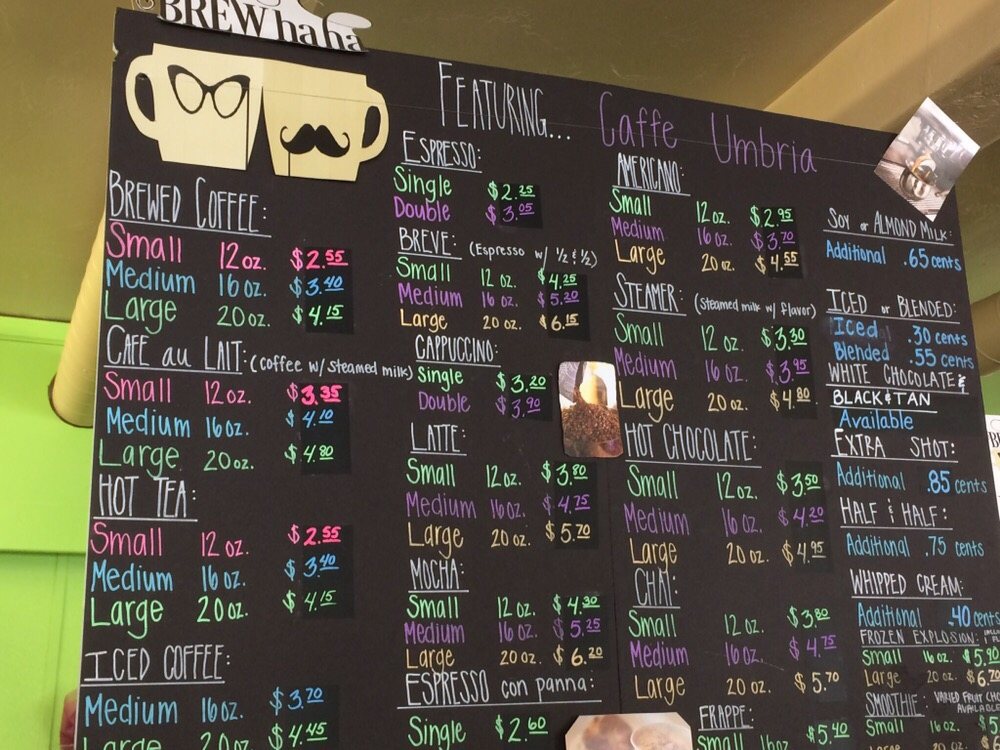 BREW ha ha
FEATURING... Caffe Umbria
BREWED COFFEE:
Small 12 oz. $2.55
Medium 16 oz. $3.40
Large 20 oz. $4.15
CAFE au LAIT: (coffee w/ steamed milk)
Small 12 oz. $3.35
Medium 16 oz. $4.10
Large 20 oz. $4.80
HOT TEA:
Small 12 oz. $2.55
Medium 16 oz. $3.40
Large 20 oz. $4.15
ICED COFFEE:
Medium 16 oz. $3.70
Large 20 oz. $4.45
ESPRESSO:
Single $2.25
Double $3.05
BREVE: (Espresso w/ 1/2 & 1/2)
Small 12 oz. $4.25
Medium 16 oz. $5.20
Large 20 oz. $6.15
CAPPUCCINO:
Single $3.20
Double $3.90
LATTE:
Small 12 oz. $3.80
Medium 16 oz. $4.75
Large 20 oz. $5.70
MOCHA:
Small 12 oz. $4.30
Medium 16 oz. $5.25
Large 20 oz. $6.20
ESPRESSO con panna:
Single $2.60
AMERICANO:
Small 12 oz. $2.95
Medium 16 oz. $3.70
Large 20 oz. $4.55
STEAMER: (steamed milk w/ flavor)
Small 12 oz. $3.30
Medium 16 oz. $3.95
Large 20 oz. $4.80
HOT CHOCOLATE:
Small 12 oz. $3.50
Medium 16 oz. $4.20
Large 20 oz. $4.95
CHAI:
Small 12 oz. $3.80
Medium 16 oz. $4.75
Large 20 oz. $5.70
FRAPPE:
Small 16 oz. $5.40
SOY or ALMOND MILK:
Additional .65 cents
ICED or BLENDED:
Iced .30 cents
Blended .55 cents
WHITE CHOCOLATE &
BLACK & TAN
Available
EXTRA SHOT:
Additional .85 cents
HALF & HALF:
Additional .75 cents
WHIPPED CREAM:
Additional .40 cents
FROZEN EXPLOSION:
Small 16 oz. $5.90
Large 20 oz. $6.70
SMOOTHIE: VARIED FRUIT
AVAILABLE
Small 16 oz.